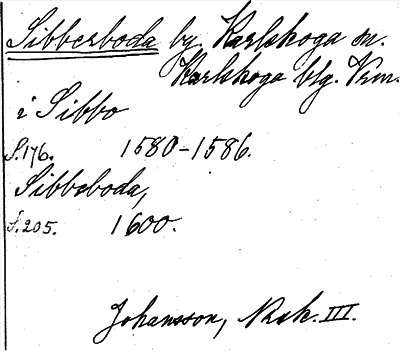 Sibberboda by. Karlskoga sn.
Karlskoga blg. Vrm.
i Sibbo
S.176. 1580-1586.
Sibbeboda,
S.205. 1600.
Johansson, Nksk. III.